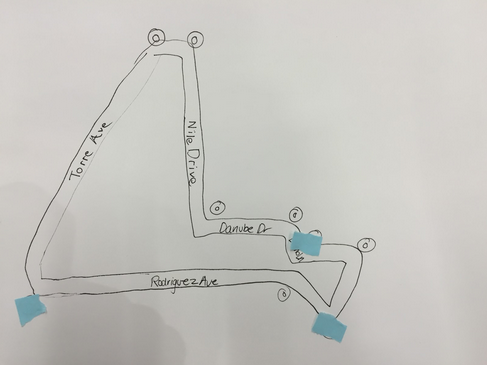 Torre Ave
Nile Drive
Danube Dr
Rodriguez Ave